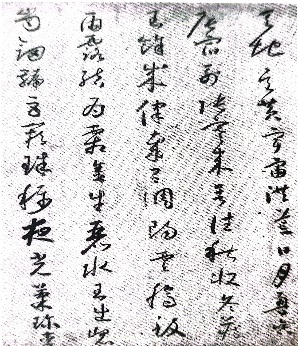 天地玄黄宇宙洪荒日月盈昃
辰宿列張寒來暑往秋收冬藏
閏餘成歲律呂調陽雲騰致
雨露結為霜金生麗水玉出崐
崗劍號巨闕珠稱夜光菓珍李